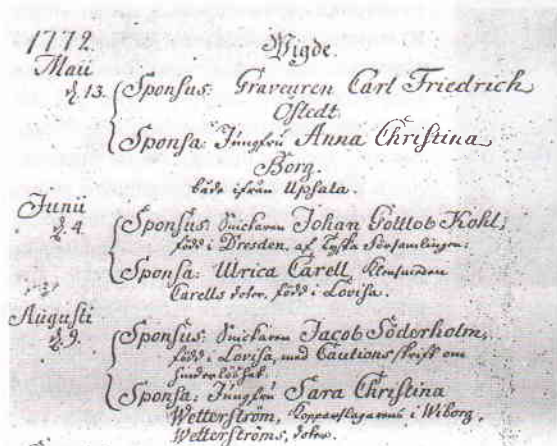 1772.
Wigde.
Maii
d. 13. Sponsus: Graveuren Carl Friedrich
Ostedt.
Sponsa: Jungfru Anna Christina
Borg.
både ifrån Upsala.
Junii
d. 4. Sponsus: Snickaren Johan Gottlob Kohl,
född i Dresden, af Tyska Församlingen.
Sponsa: Ulrica Carell,
Carells doter, född i Lovisa.
Augusti
d. 9. Sponsus: Snickaren Jacob Söderholm,
född i Lovisa, med Cautions skrift om
Sponsa: Jungfru Sara Christina
Wetterström, Kopparslagarens i Wiborg,
Wetterströms, doter.